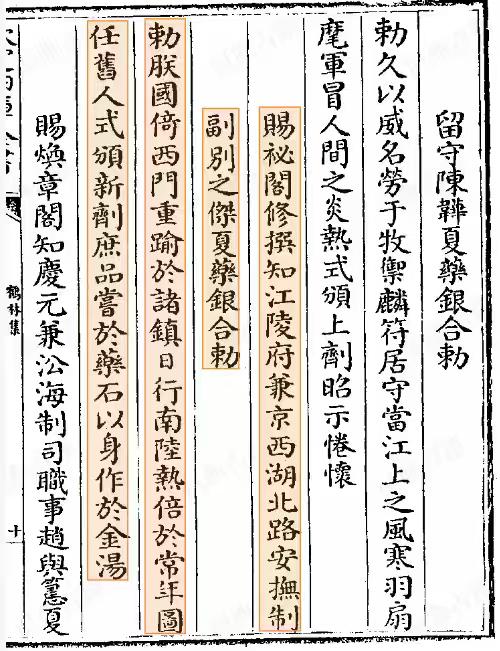 留守陳韡夏藥銀合勅
勅久以威名勞于牧禦麟符居守當江上之風寒羽扇
麾軍冒人間之炎熱式頒上劑昭示惓懷
賜祕閣修撰知江陵府兼京西湖北路安撫制
副别之傑夏藥銀合勅
勅朕國倚西門重踰於諸鎮日行南陸熱倍於常年圖
任舊人式頒新劑庶品嘗於藥石以身作於金湯
賜煥章閣知慶元兼㳂海制司職事趙與𥲅夏
鶴林集
十